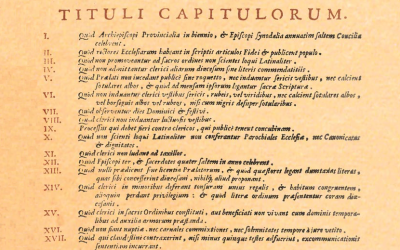 TITULI CAPITULORUM.
I. Quod Archiepiscopi Provincialia in biennio, & Episcopi Synodalia annuatim saltem Concilia
celebrent.
II. Quod rectores Ecclesiarum habeant in scriptis articulos Fidei & publicent populo.
III. Quod non promoveantur ad sacros ordines non scientes loqui Latinaliter.
IV. Quod non admittantur clerici aliarum diœcesum sine literis commendatitiis.
V. Quod Prælati non incedant publice sine roquetto, nec induantur sericis vestibus, nec calcient
sotulares albos, & quod ad mensam ipsorum legantur sacra Scriptura.
VI. Quod non induantur clerici vestibus sericis, rubeis, vel viridibus, nec calcient sotulares albos,
vel borsequios albos vel rubeos, nisi cum nigris desuper sotularibus.
VII. Quod observentur dies Dominici & festivi.
VIII. Quod clerici non induantur vestibus.
IX. Processus qui debet fieri contra clericos, qui publice tenent concubinam.
X. Quod non scienti loqui Latinaliter non conferantur Parochiales Ecclesiæ, nec Canonicatus
& dignitates.
XI. Quod clerici non ludant ad taxillos.
XII. Quod Episcopi ter, & sacerdotes quater saltem in anno celebrent.
XIII. Quod nulli prædicent sine licentia Prælatorum, & quod quæstores legant dumtaxat literas,
quas sibi concesserint diœcesani, nihil aliud proponant.
XIV. Quod clerici in minoribus deferant tonsuram unius regalis, & habitum congruentem,
aliquin perdant privilegium: & quod litera ordinum præsententur coram
diœcesanis.
XV. Quod clerici in sacris Ordinibus constituti, aut beneficiati non vivant cum dominis temporalibus
ad auxilia armorum præstanda.
XVI. Quod non fiant nuptiæ, nec carnales commixtiones, nec solemnitates tempore a jure vetito.
XVII. Quod qui clandestine contraxerint, nisi minus quinque testes adfuerint, excommunicationis
sententiam incurrant.